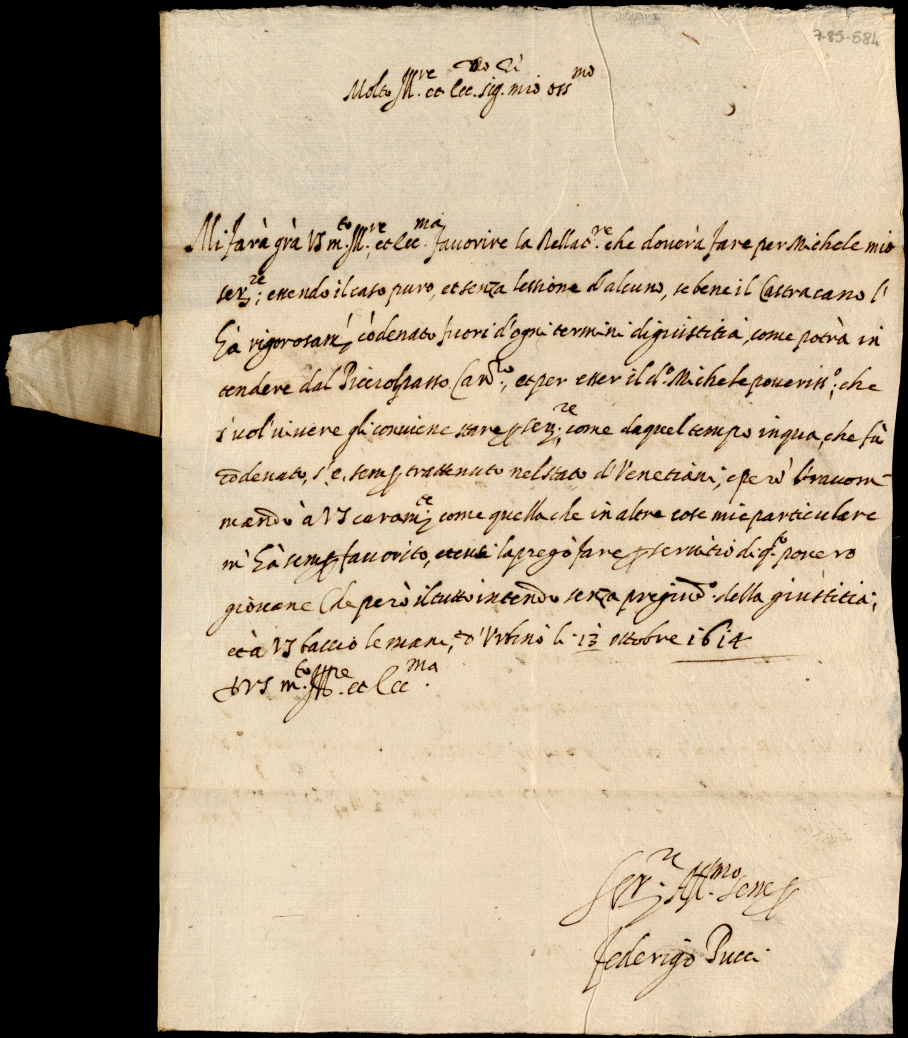 7-85-684
Molto Ill.re et Ecc. sig. mio oss.mo
Mi farà grã VS m.to Ill.re et Ecc.ma favorire la Rellat.re che doverà fare per Michele mio
ser.re; essendo il caso puro, et senza lessione d'alcuno, se bene il Castracano l'
hà rigorosam. cõdenato fuori d'ogni termini di giustitia, come potrà in
tendere dal Picciolpasso, et per esser il d.o Michele poveriss.o, che
s'vol vivere gli conviene stare p ser.re, come da quel tempo in qua, che fù
cõdenato, s'è semp trattenuto nel stato d'Venetiani; e però
mando à VS caram.te come quella che in altre cose mie particulare
m'hà semp favorito, et la prego fare p servitio di q.to povero
giovane che però il tutto intendo senza pregiud.o della giustitia;
et à VS baccio le mani, d'Urbino li 13 ottobre 1614
D VS m.to Ill.re et Ecc.ma
Ser.re Aff.mo semp
Federigo Pucci